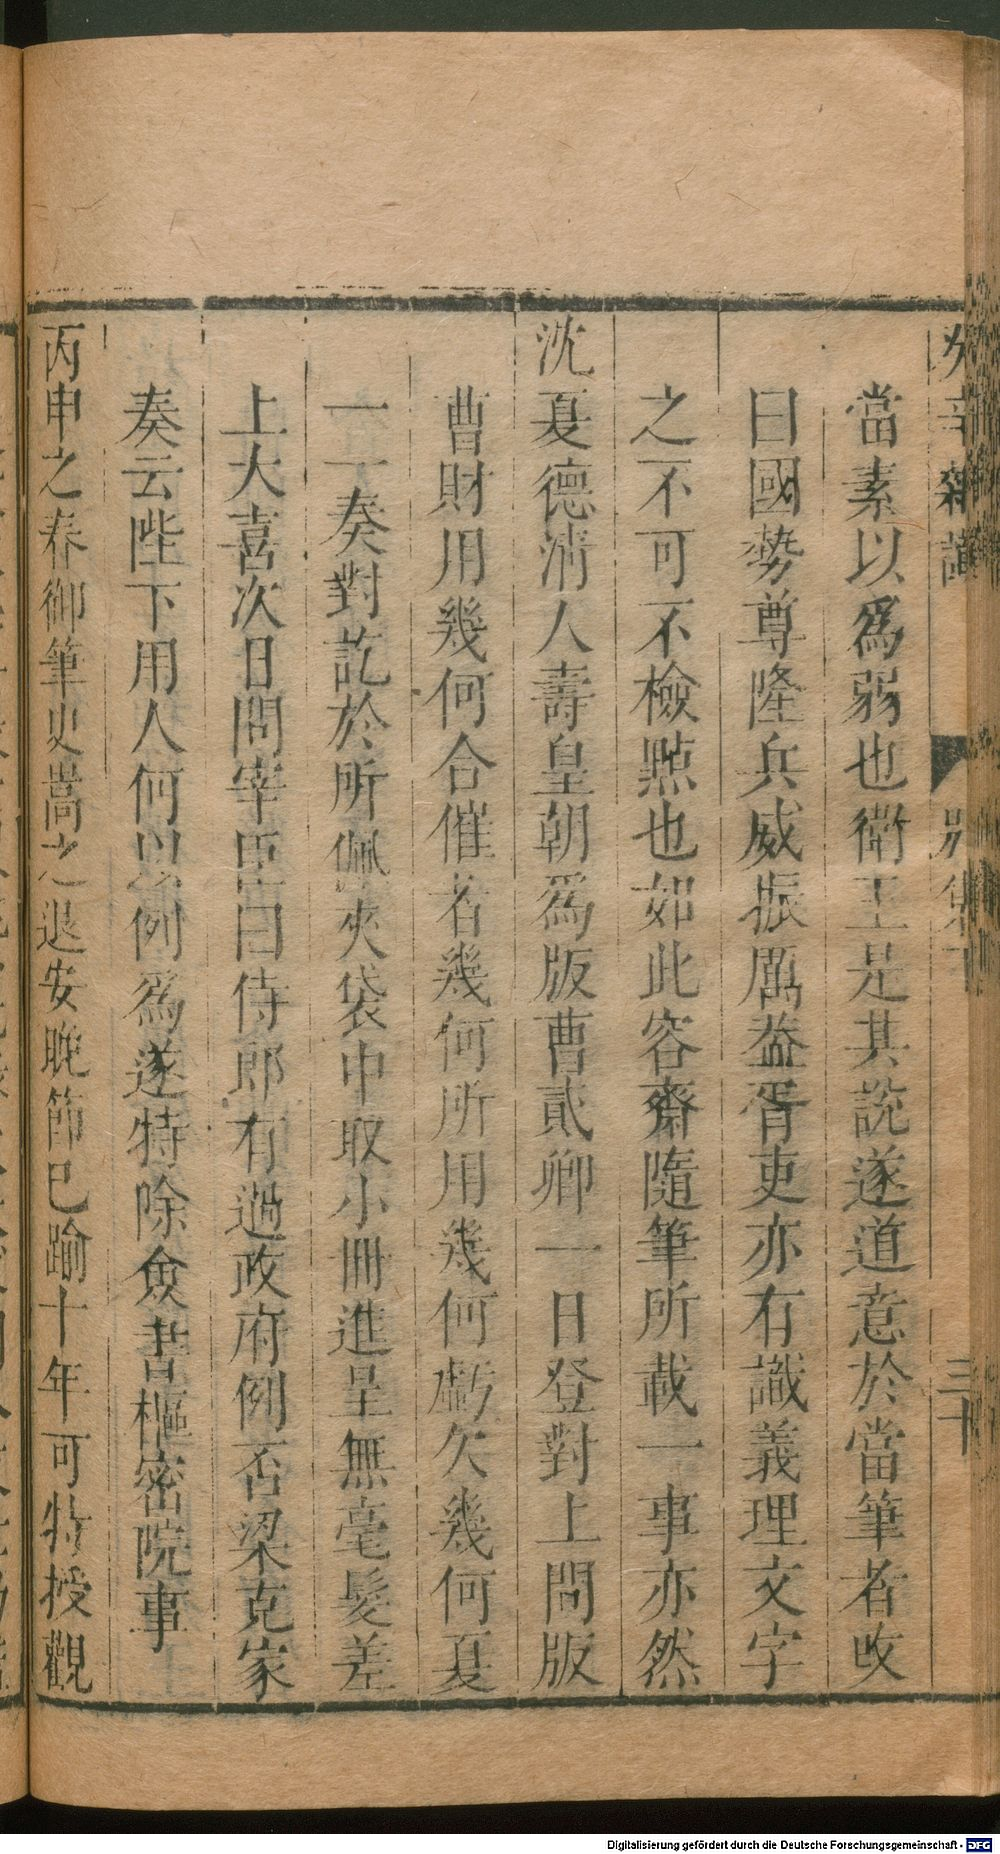 癸辛雜識
別集下
三十
當素以爲弱也衛王是其說遂道意於當筆者改
曰國勢尊隆兵威振厲葢胥吏亦有識義理文字
之不可不檢㸃也如此容齋隨筆所載一事亦然
沈夏德清人壽皇朝爲版曹貳卿一日登對上問版
曹財用幾何合催者幾何所用幾何虧欠幾何夏
一一奏對訖於所佩夾袋中取小冊進呈無毫髮差
上大喜次日問宰臣曰侍郎有過政府例否梁克家
奏云陛下用人何以例爲遂特除僉書樞密院事
丙申之春御筆史嵩之退安晚節已踰十年可特授觀
Digitalisierung gefördert durch die Deutsche Forschungsgemeinschaft - DFG